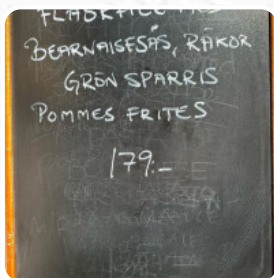 BEARNAISESÅS, RÄKOR
GRÖN SPARRIS
POMMES FRITES
179:-